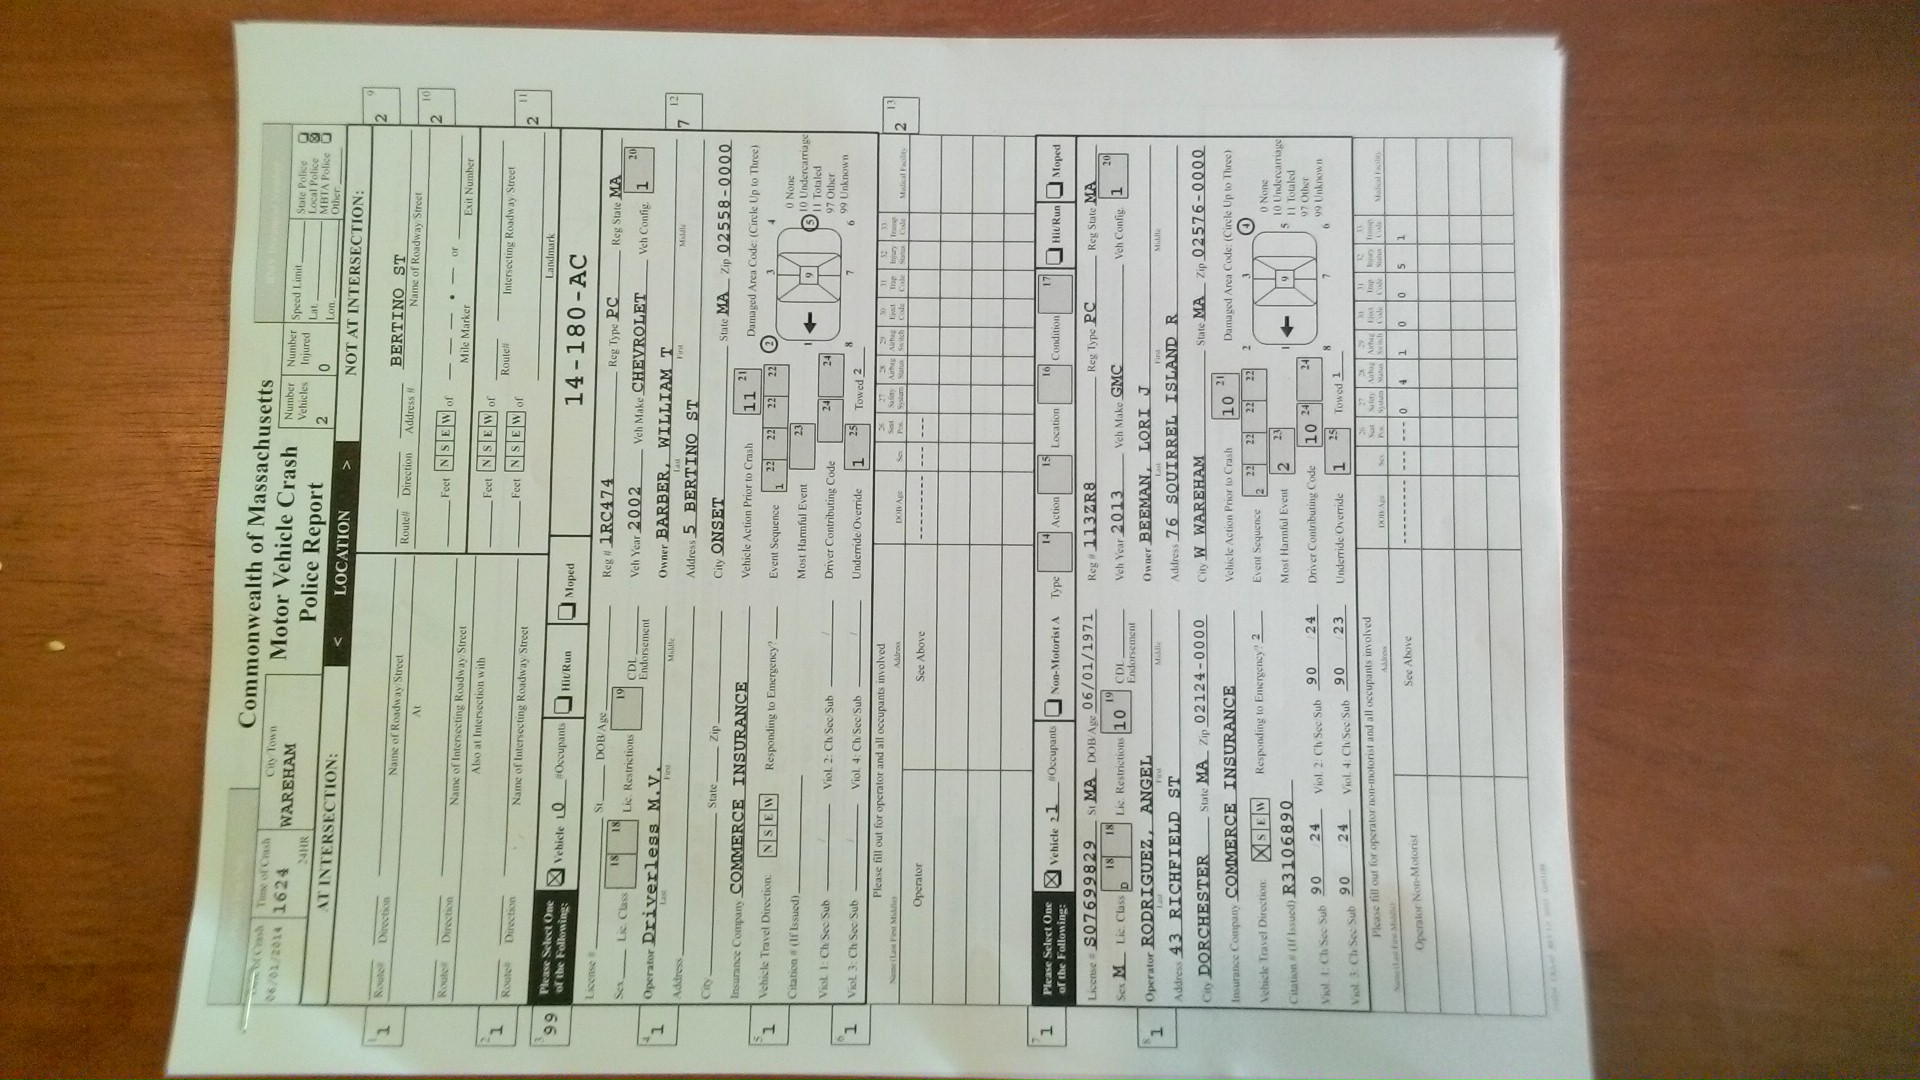 Commonwealth of Massachusetts
Motor Vehicle Crash
Police Report
Date of Crash
06/01/2014
Time of Crash
1624
24HR
City/Town
WAREHAM
Number
Vehicles
2
Number
Injured
0
Speed Limit
Lat.
Lon.
State Police
Local Police
MBTA Police
Other
AT INTERSECTION:
< LOCATION >
NOT AT INTERSECTION:
Route# Direction Name of Roadway/Street
At
Route# Direction Name of Intersecting Roadway/Street
Also at Intersection with
Route# Direction Name of Intersecting Roadway/Street
BERTINO ST
Route# Direction Address # Name of Roadway/Street
Feet N S E W of Mile Marker or Exit Number
Feet N S E W of Route# Intersecting Roadway/Street
Feet N S E W of Landmark
1 1
2 1
3 99
4 1
5 1
6 1
7 1
8 1
2 9
2 10
2 11
7 12
2 13
Please Select One
of the Following:
Vehicle 1 0 #Occupants Hit/Run Moped
14-180-AC
License # St. DOB/Age
Sex Lic. Class 18 18 Lic. Restrictions 19 CDL
Endorsement
Operator Driverless M.V.
Last First Middle
Address
City State Zip
Insurance Company COMMERCE INSURANCE
Vehicle Travel Direction: N S E W Responding to Emergency?
Citation # (If Issued)
Viol. 1: Ch/Sec/Sub / Viol. 2: Ch/Sec/Sub /
Viol. 3: Ch/Sec/Sub / Viol. 4: Ch/Sec/Sub /
Reg # 1RC474 Reg Type PC Reg State MA
Veh Year 2002 Veh Make CHEVROLET Veh Config. 1 20
Owner BARBER, WILLIAM T
Last First Middle
Address 5 BERTINO ST
City ONSET State MA Zip 02558-0000
Vehicle Action Prior to Crash 11 21 Damaged Area Code: (Circle Up to Three)
Event Sequence 1 22 22 22 22
Most Harmful Event 23
Driver Contributing Code 24 24
Underride/Override 1 25 Towed 2
2 3 4
1 9 5
8 7 6
0 None
10 Undercarriage
11 Totaled
97 Other
99 Unknown
Please fill out for operator and all occupants involved
Name (Last First Middle) Address DOB/Age Sex
26
Seat
Pos.
27
Safety
System
28
Airbag
Status
29
Airbag
Switch
30
Eject
Code
31
Trap
Code
32
Injury
Status
33
Transp
Code
Medical Facility
Operator See Above -------- --- ---
Please Select One
of the Following:
Vehicle 2 1 #Occupants Non-Motorist A Type 14 Action 15 Location 16 Condition 17 Hit/Run Moped
License # S07699829 St MA DOB/Age 06/01/1971
Sex M Lic. Class D 18 18 Lic. Restrictions 10 19 CDL
Endorsement
Operator RODRIGUEZ, ANGEL
Last First Middle
Address 43 RICHFIELD ST
City DORCHESTER State MA Zip 02124-0000
Insurance Company COMMERCE INSURANCE
Vehicle Travel Direction: N S E W Responding to Emergency? 2
Citation # (If Issued) R3106890
Viol. 1: Ch/Sec/Sub 90 24 Viol. 2: Ch/Sec/Sub 90 /24
Viol. 3: Ch/Sec/Sub 90 24 Viol. 4: Ch/Sec/Sub 90 23
Reg # 113ZR8 Reg Type PC Reg State MA
Veh Year 2013 Veh Make GMC Veh Config. 1 20
Owner BEEMAN, LORI J
Last First Middle
Address 76 SQUIRREL ISLAND R
City W WAREHAM State MA Zip 02576-0000
Vehicle Action Prior to Crash 10 21 Damaged Area Code: (Circle Up to Three)
Event Sequence 2 22 22 22 22
Most Harmful Event 2 23
Driver Contributing Code 10 24 24
Underride/Override 1 25 Towed 1
2 3 4
1 9 5
8 7 6
0 None
10 Undercarriage
11 Totaled
97 Other
99 Unknown
Please fill out for operator/non-motorist and all occupants involved
Name (Last First Middle) Address DOB/Age Sex
26
Seat
Pos.
27
Safety
System
28
Airbag
Status
29
Airbag
Switch
30
Eject
Code
31
Trap
Code
32
Injury
Status
33
Transp
Code
Medical Facility
Operator/Non-Motorist See Above --------- --- --- 0 4 1 0 0 5 1